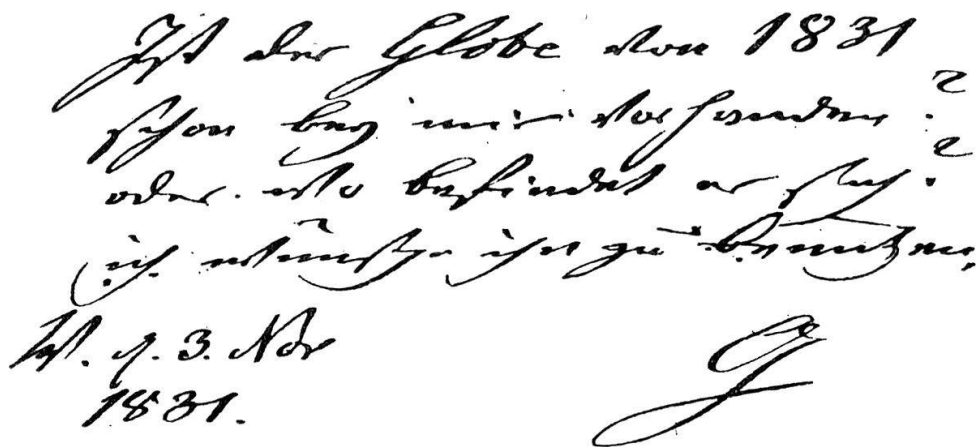 Ist der Globe von 1831
schon bey mir vorhanden?
oder wo befindet er sich?
ich wünsche ihn zu benutzen,
W. d. 3. Nov
1831.
G